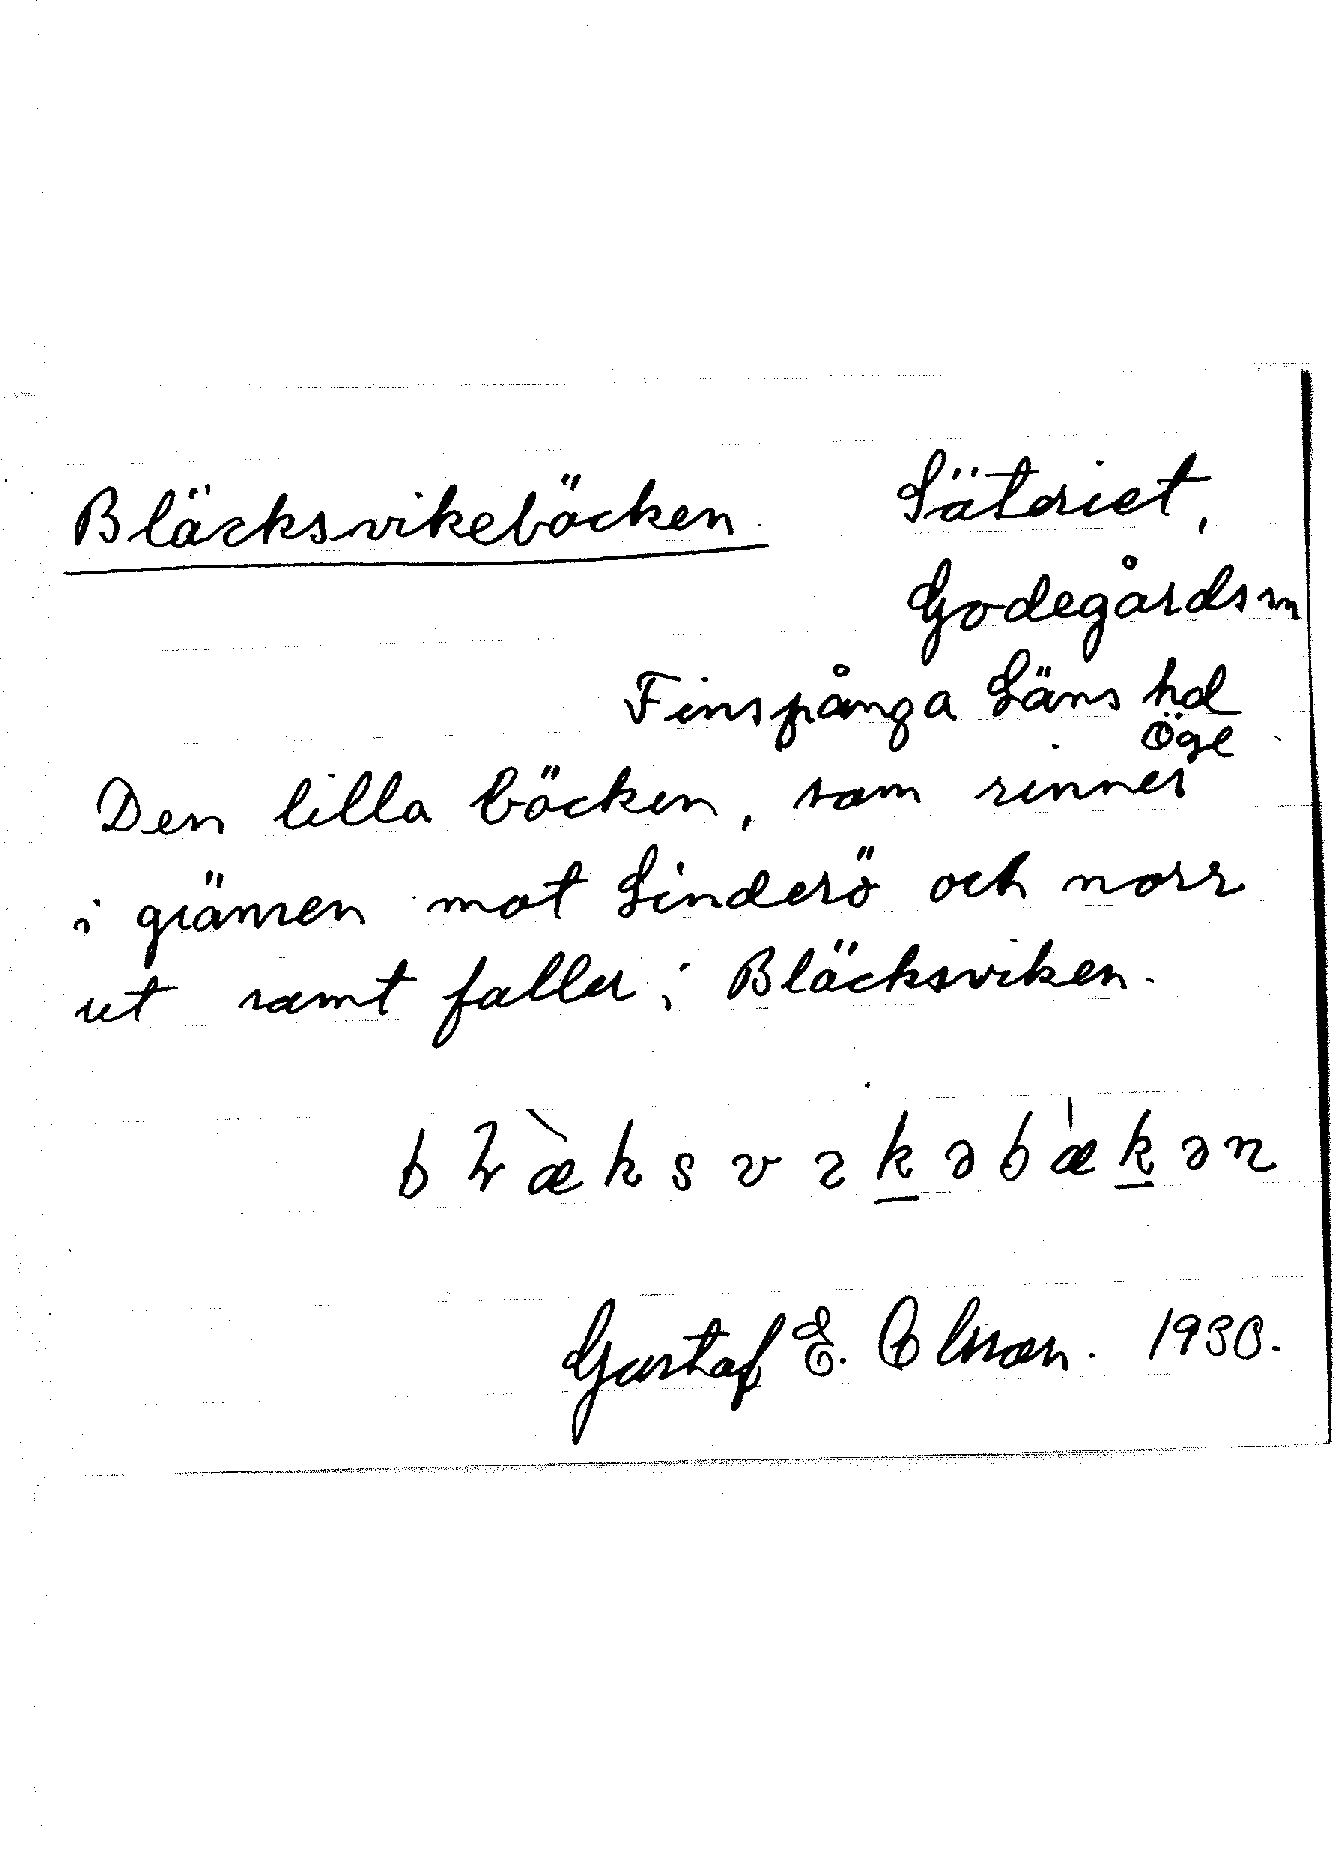 Bläcksvikebäcken Säteriet,
Godegårds sn
Finspånga Läns hd
Ögl
Den lilla bäcken, som rinner
i gränsen mot Linderö och norr
ut samt faller i Bläcksviken.
Gustaf E. Olsson. 1930.